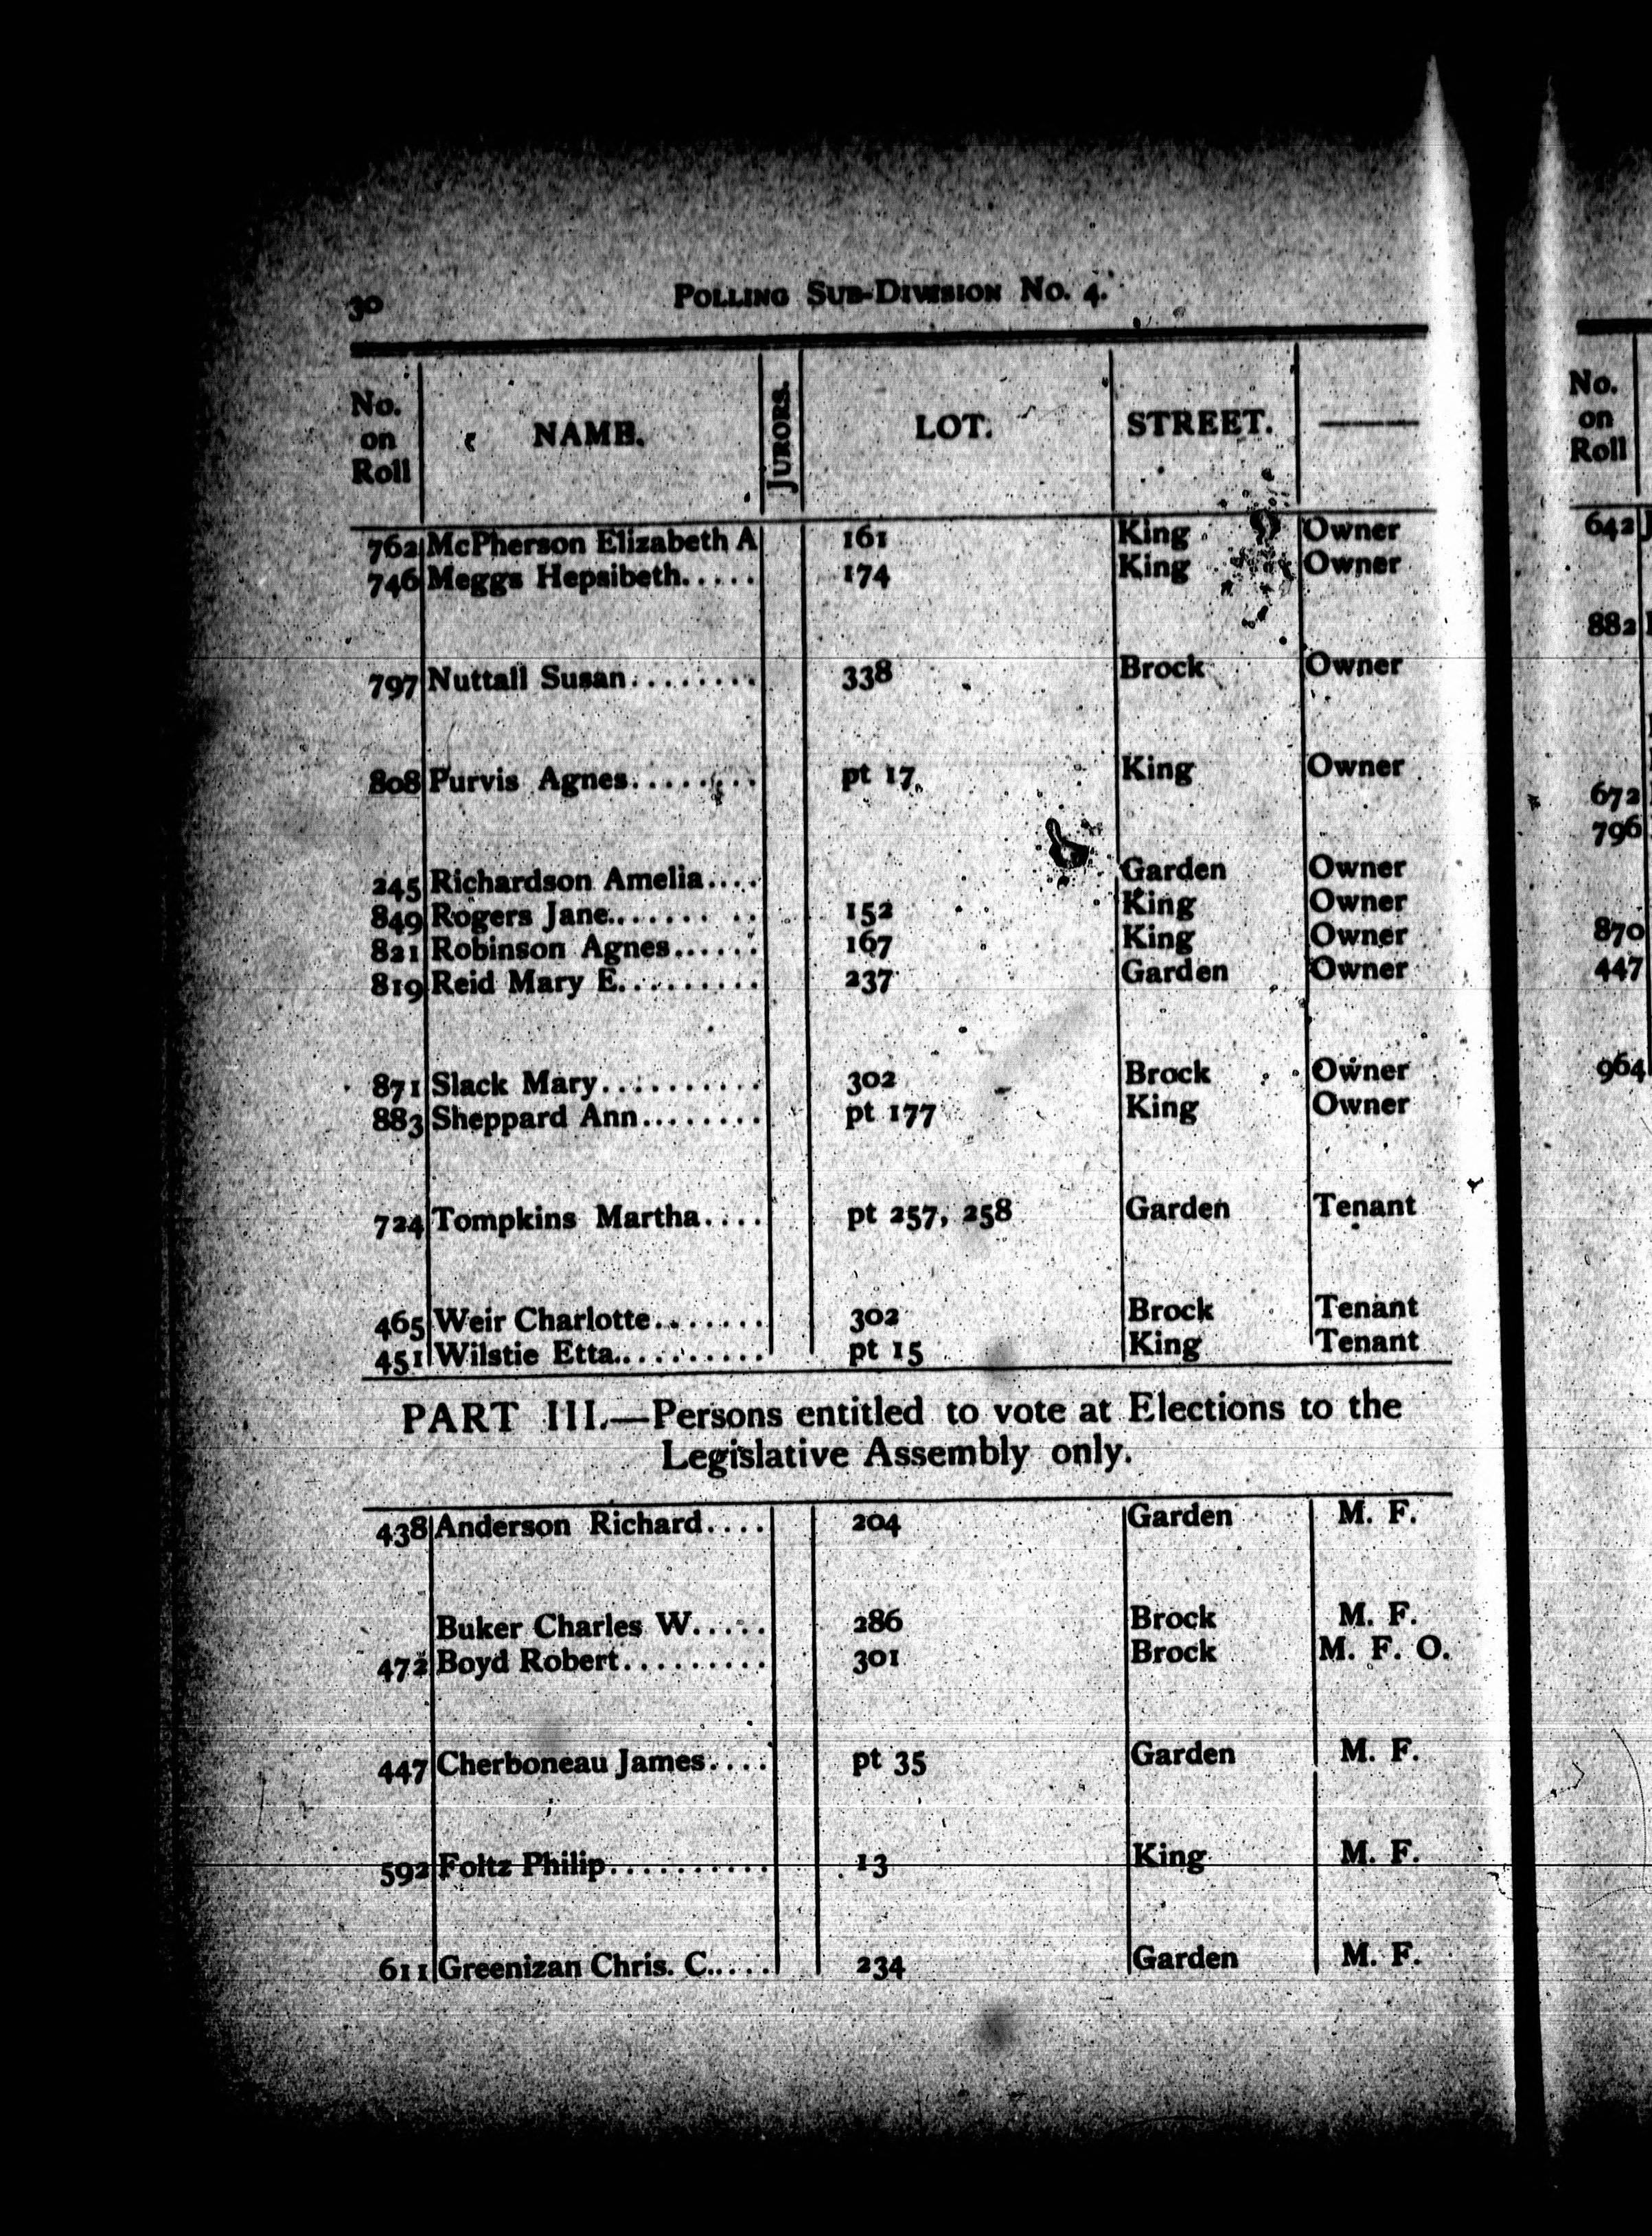 30 POLLING SUB-DIVISION No. 4.
No. on Roll NAME. JURORS. LOT. STREET.
762 McPherson Elizabeth A 161 King Owner
746 Meggs Hepsibeth..... 174 King Owner
797 Nuttall Susan........ 338 Brock Owner
808 Purvis Agnes........ pt 17 King Owner
245 Richardson Amelia.... Garden Owner
849 Rogers Jane......... 152 King Owner
821 Robinson Agnes...... 167 King Owner
819 Reid Mary E......... 237 Garden Owner
871 Slack Mary.......... 302 Brock Owner
883 Sheppard Ann........ pt 177 King Owner
724 Tompkins Martha.... pt 257, 258 Garden Tenant
465 Weir Charlotte....... 302 Brock Tenant
451 Wilstie Etta.......... pt 15 King Tenant
PART III.—Persons entitled to vote at Elections to the
Legislative Assembly only.
438 Anderson Richard.... 204 Garden M. F.
Buker Charles W..... 286 Brock M. F.
472 Boyd Robert......... 301 Brock M. F. O.
447 Cherboneau James.... pt 35 Garden M. F.
592 Foltz Philip.......... 13 King M. F.
611 Greenizan Chris. C..... 234 Garden M. F.
No.
on
Roll
642
882
672
796
870
447
964